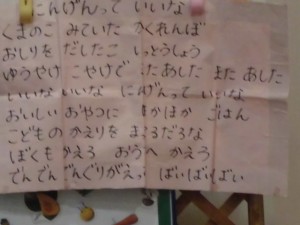 にんげんって いいな
くまのこ みていた かくれんぼ
おしりを だしたこ いっとうしょう
ゆうやけ こやけで またあした また あした
いいな いいな にんげんって いいな
おいしい おやつに ほかほか ごはん
こどもの かえりを まってるだろな
ぼくも かえろ おうちへ かえろ
でんでん でんぐりがえって ばいばいばい